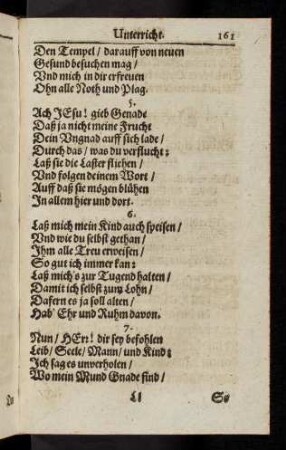 Unterricht. 161
Den Tempel / darauff von neuen
Gesund besuchen mag /
Vnd mich in dir erfreuen
Ohn alle Noth und Plag.
5.
Ach JEsu! gieb Genade
Daß ja nicht meine Frucht
Dein Vngnad auff sich lade /
Durch das / was du verflucht:
Laß sie die Laster fliehen /
Vnd folgen deinem Wort /
Auff daß sie mögen blühen
In allem hier und dort.
6.
Laß mich mein Kind auch speisen /
Vnd wie du selbst gethan /
Ihm alle Treu erweisen /
So gut ich immer kan:
Laß mich's zur Tugend halten /
Damit ich selbst zum Lohn /
Dafern es ja soll alten /
Hab' Ehr und Ruhm davon.
7.
Nun / HErr! dir sey befohlen
Leib / Seele / Mann / und Kind:
Ich sag es unverholen /
Wo mein Mund Gnade find /
Ll So